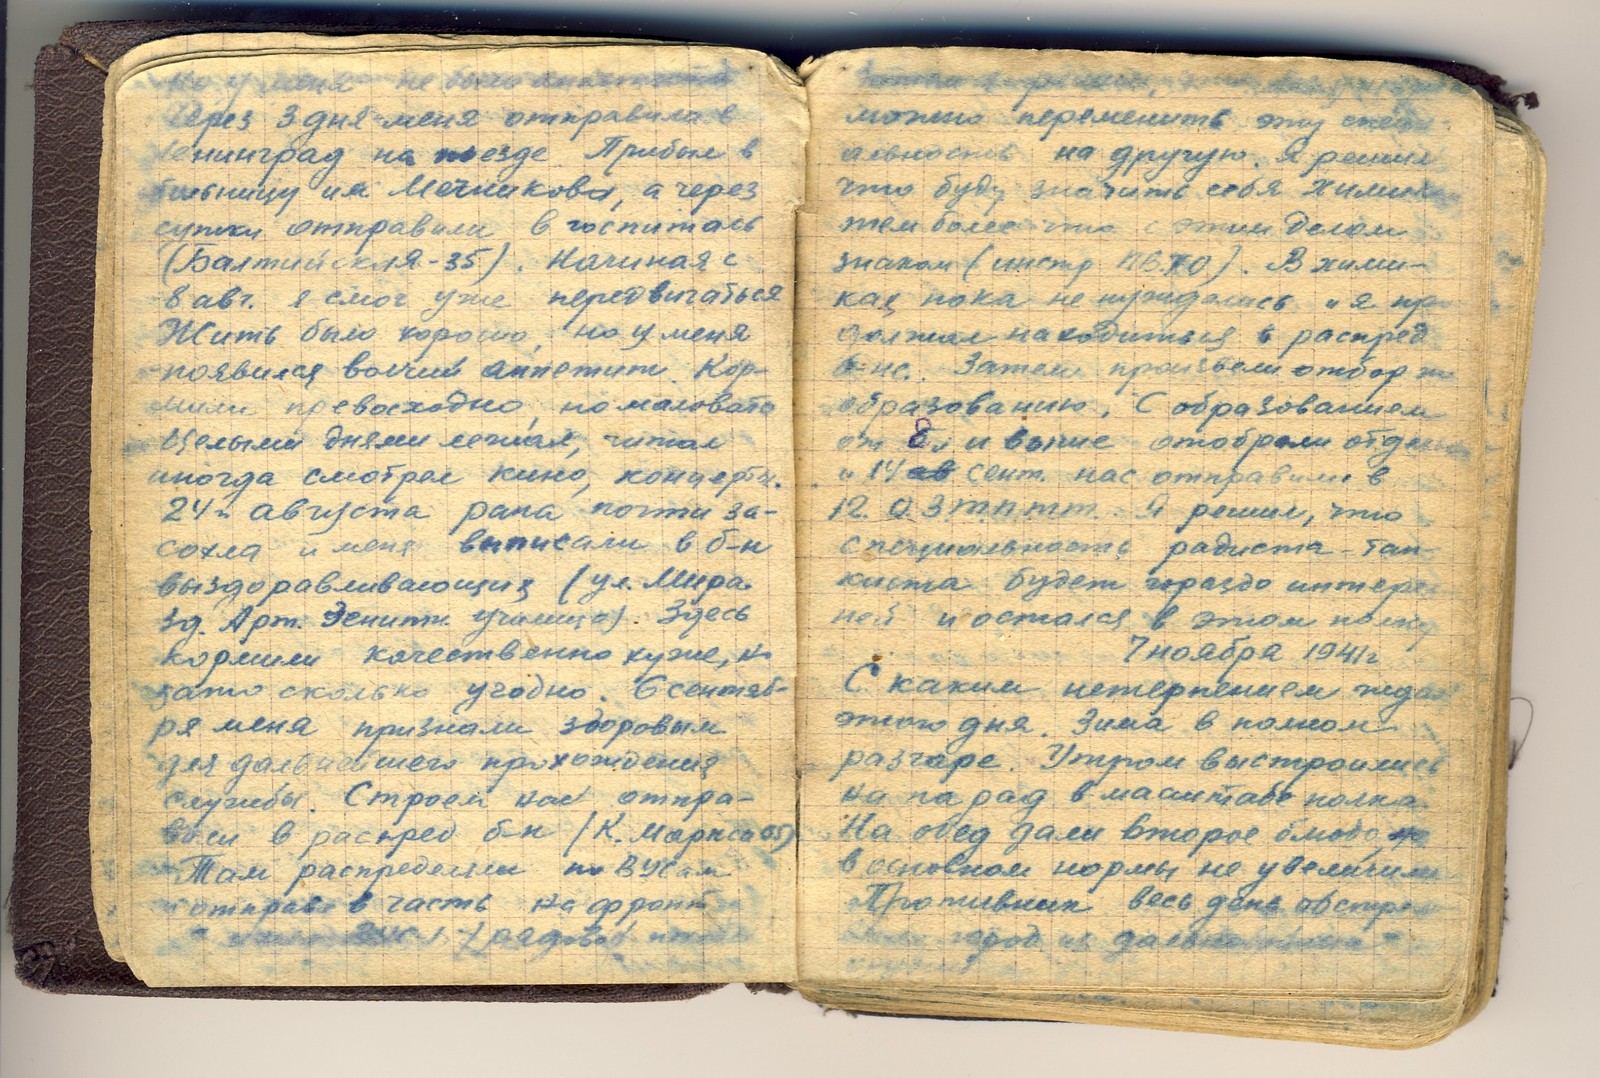 но у меня не было аппетита
Через 3 дня меня отправили в
Ленинград на поезде Прибыл в
больницу им Мечникова, а через
сутки отправили в госпиталь
(Балтийская-35). Начиная с
8 авг. я смог уже передвигаться
Жить было хорошо, но у меня
появился волчий аппетит. Кор-
мили превосходно, но маловато
Целыми днями лежал, читал
иногда смотрел кино, концерты.
24го августа рана почти за-
сохла и меня выписали в б-н
выздоравливающих (ул. Мира
зд. Арт. Зенитн. училища). Здесь
кормили качественно хуже, но
зато сколько угодно. 6 сентяб-
ря меня признали здоровым
для дальнейшего прохождения
службы. Строем нас отпра-
вили в распред б-н (К. Маркса 65)
Там распределяли по ВУСам
в часть на фронт
рядовой
можно переменить эту специ-
альность на другую. Я решил
что буду значить себя химиком
тем более что с этим делом
знаком (инстр ПВХО). В хими-
ках пока не нуждались и я про
должал находиться в распред
б-не. Затем произвели отбор по
образованию. С образованием
от 8 и выше отобрали отдельно
и 14 сент. нас отправили в
12 О З т п т т. Я решил, что
специальность радиста-тан-
киста будет гораздо интерес
ней и остался в этом полку
7 ноября 1941г
С каким нетерпением ждал
этого дня. Зима в полном
разгаре. Утром выстроились
на парад в масштабе полка
На обед дали второе блюдо, но
в основном нормы не увеличили
Противник весь день обстрел
город из